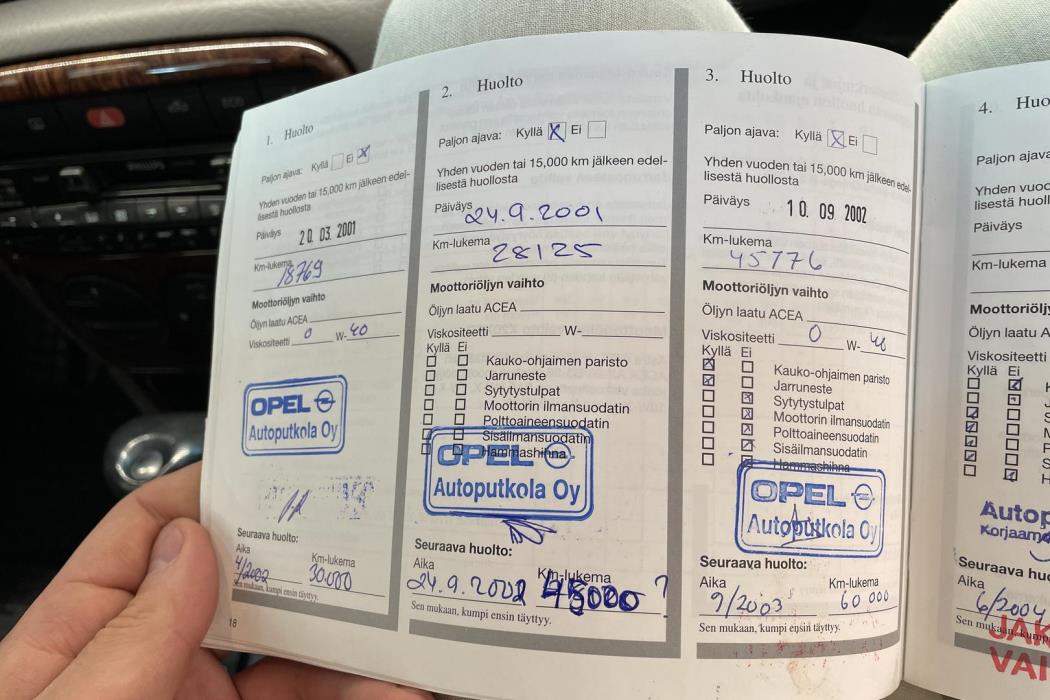 1. Huolto
Paljon ajava: Kyllä Ei X
Yhden vuoden tai 15,000 km jälkeen edel-
lisestä huollosta
Päiväys 20.03.2001
Km-lukema 18769
Moottoriöljyn vaihto
Öljyn laatu ACEA
Viskositeetti 0 W-40
OPEL
Autoputkola Oy
Seuraava huolto:
Aika Km-lukema
4/2002 30.000
Sen mukaan, kumpi ensin täyttyy.
18
2. Huolto
Paljon ajava: Kyllä X Ei
Yhden vuoden tai 15,000 km jälkeen edel-
lisestä huollosta
Päiväys 24.9.2001
Km-lukema 28125
Moottoriöljyn vaihto
Öljyn laatu ACEA
Viskositeetti W-
Kyllä Ei
Kauko-ohjaimen paristo
Jarruneste
Sytytystulpat
Moottorin ilmansuodatin
Polttoaineensuodatin
Sisäilmansuodatin
Hammashihna
OPEL
Autoputkola Oy
Seuraava huolto:
Aika Km-lukema
24.9.2002 45000 ?
Sen mukaan, kumpi ensin täyttyy.
3. Huolto
Paljon ajava: Kyllä X Ei
Yhden vuoden tai 15,000 km jälkeen edel-
lisestä huollosta
Päiväys 10.09.2002
Km-lukema 45776
Moottoriöljyn vaihto
Öljyn laatu ACEA
Viskositeetti 0 W-40
Kyllä Ei
X Kauko-ohjaimen paristo
X Jarruneste
X Sytytystulpat
X Moottorin ilmansuodatin
X Polttoaineensuodatin
X Sisäilmansuodatin
X Hammashihna
OPEL
Autoputkola Oy
Seuraava huolto:
Aika Km-lukema
9/2003 60 000
Sen mukaan, kumpi ensin täyttyy.
4. Huo
Paljon ajava
Yhden vuod
lisestä huoll
Päiväys
Km-lukema
Moottoriölj
Öljyn laatu A
Viskositeetti
Kyllä Ei
Autop
Korjaam
Seuraava huo
Aika
6/2004
Sen mukaan, kump
JAK
VAI